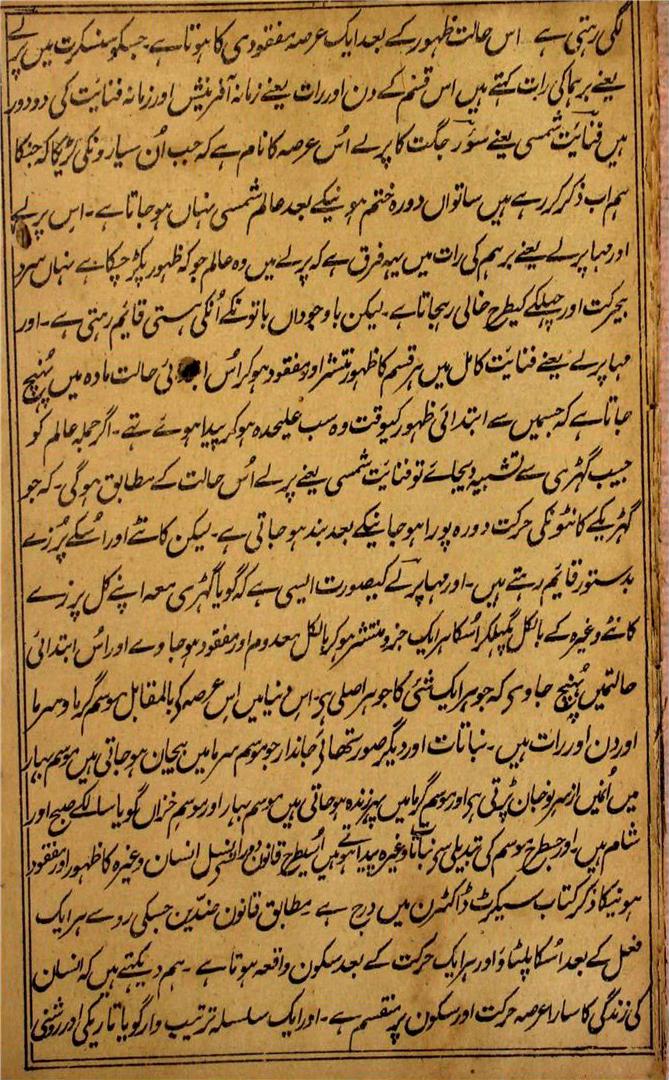 لگی رہتی ہے اس حالت ظہور کے بعد ایک عرصہ مفقودی کا ہوتا ہے۔ جسکو سنسکرت میں پرلے
یعنے برہما کی رات کہتے ہیں اس قسم کے دن اور رات یعنے زمانہ آفرینش اور زمانہ فنایت کی دو دور
ہیں فنایت شمسی یعنے سوَر جگت کا پرلے اُس عرصہ کا نام ہے کہ جب اُن سیارونکی لڑیکا کہ جنکا
ہم اب ذکر کر رہے ہیں ساتواں دورہ ختم ہونیکے بعد عالم شمسی نہاں ہو جاتا ہے۔ اس پرلے
اور مہا پرلے یعنے برہم کی رات میں یہہ فرق ہے کہ پرلے میں وہ عالم جو کہ ظہور پکڑ چکا ہے نہاں سرد
بیحرکت اور چھلکے کیطرح خالی رہجاتا ہے۔ لیکن باوجود ان باتونکے اُنکی ہستی قایم رہتی ہے۔ اور
مہا پرلے یعنے فنایت کامل میں ہر قسم کا ظہور منتشر اور مفقود ہو کر اُس ابتدائی حالت مادہ میں پہُنچ
جاتا ہے کہ جسمیں سے ابتدائی ظہور کیوقت وہ سب علیحدہ ہو کر پیدا ہوئے تہے۔ اگر جملہ عالم کو
جیب گہڑی سے تشبیہ دیجاے تو فنایت شمسی یعنے پرلے اُس حالت کے مطابق ہوگی۔ کہ جو
گہڑیکے کانٹونکی حرکت دورہ پورا ہو جانیکے بعد بند ہو جاتی ہے۔ لیکن کانٹے اور اُسکے پُرزے
بدستور قایم رہتے ہیں۔ اور مہا پرلے کیصورت ایسی ہے کہ گویا گہڑی معہ اپنے کل پرزے
کانٹے وغیرہ کے بالکل گہلکر اُسکا ہر ایک جزو منتشر ہو کر بالکل معدوم اور مفقود ہو جاوے اور اُس ابتدائی
حالتمیں پہُنچ جاوی کہ جو ہر ایک شئی کا جوہر اصلی ہی۔ اس دنیا میں اس عرصہ کی بالمقابل موسم گرما و سرما
اور دن اور رات ہیں۔ نباتات اور دیگر صورتہائے جاندار جو موسم سرما میں بیجان ہو جاتی ہیں موسم بہار
میں اُنمیں از سر نو جان پڑتی ہی اور موسم گرما میں پہر زندہ ہو جاتی ہیں موسم بہار اور موسم خزاں گویا سالکے صبح اور
شام ہیں۔ اور جسطرح موسم کی تبدیلی سی نباتات وغیرہ پیدا ہوتے ہیں اُسیطرح قانون دور نسل انسان وغیرہ کا ظہور اور مفقود
ہونیکا ذکر کتاب سیکرٹ ڈاکٹرن میں درج ہے مطابق قانون ضدّین جسکی روسے ہر ایک
فعل کے بعد اُسکا پلٹاؤ اور ہر ایک حرکت کے بعد سکون واقعہ ہوتا ہے۔ ہم دیکہتے ہیں کہ انسان
کی زندگی کا سارا عرصہ حرکت اور سکون پر منقسم ہے۔ اور ایک سلسلہ ترتیب وار گویا تاریکی اور روشنی